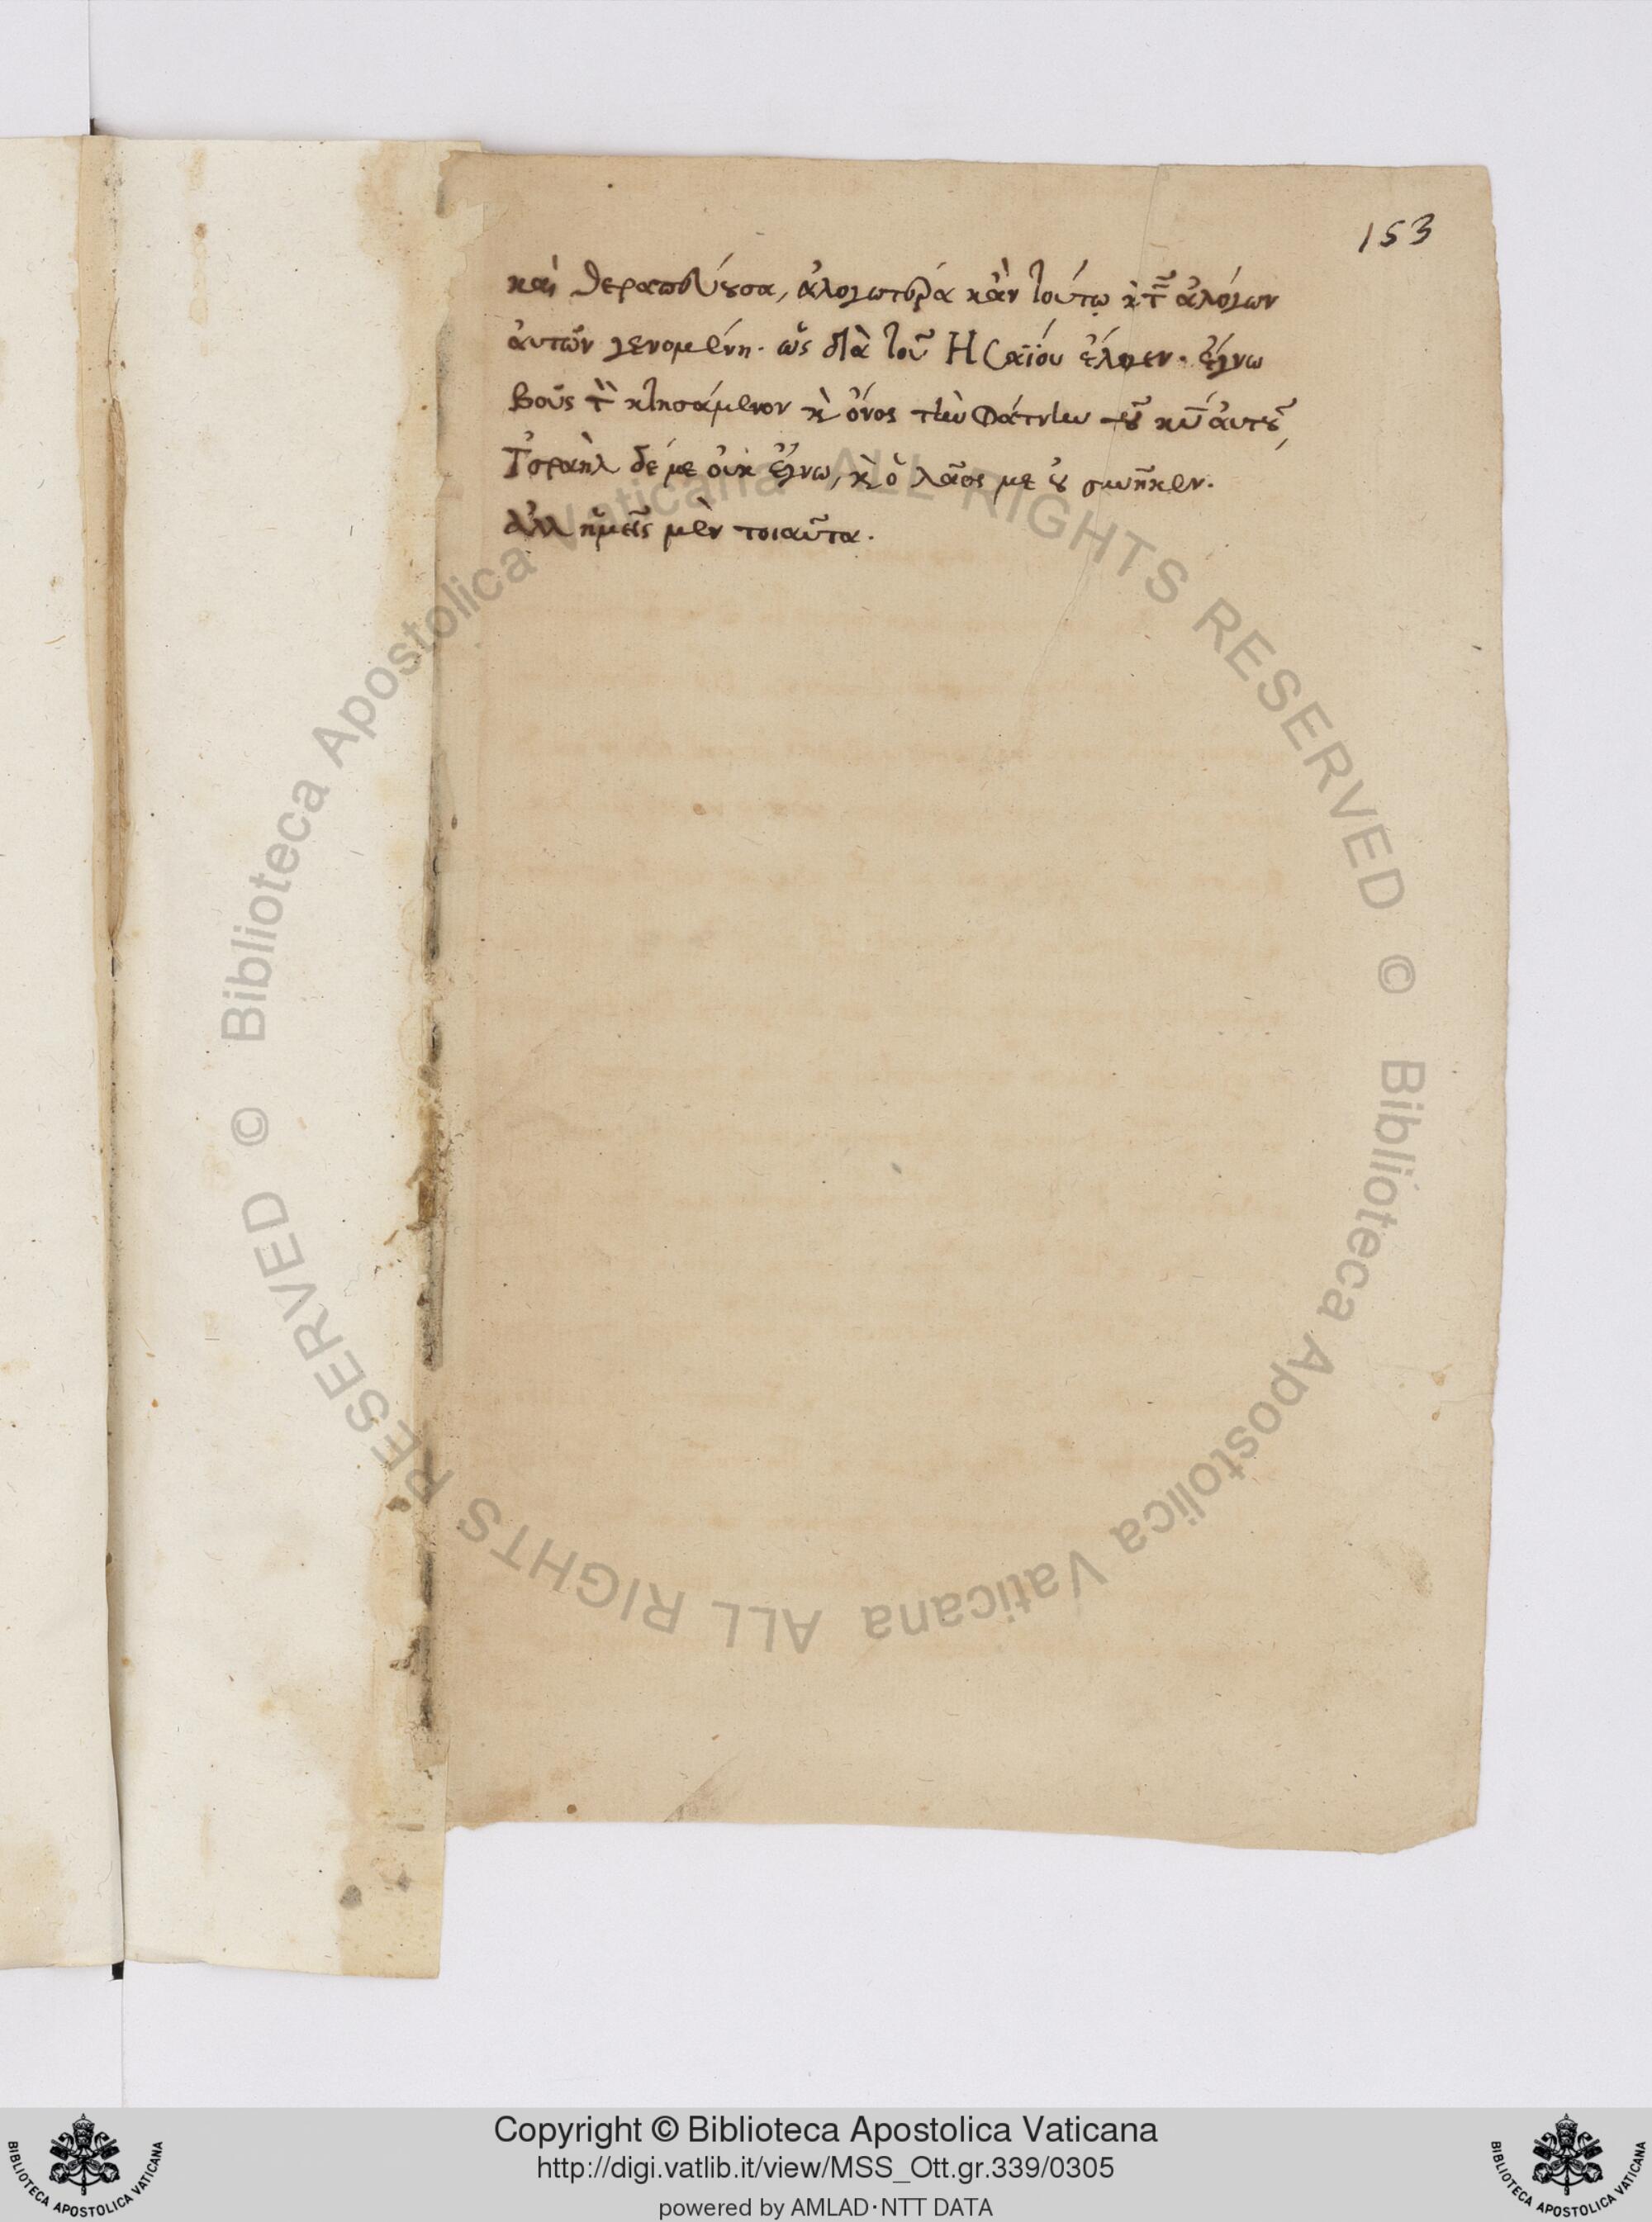 153
καὶ θεραπεύουσα, ἀλογωτέρα κἀν τούτῳ κ τῶν ἀλόγων
αὐτῶν γενομένη. ὡς διὰ τοῦ Ἠσαΐου ἔλεγεν. ἔγνω
βοῦς τὸν κτησάμενον κ ὄνος τὴν φάτνην τοῦ κυ αὐτοῦ,
Ἰσραὴλ δέ με οὐκ ἔγνω, κ ὁ λαός με οὐ συνῆκεν.
ἀλλ ἡμεῖς μὲν τοιαῦτα.
© Biblioteca Apostolica Vaticana ALL RIGHTS RESERVED
© Biblioteca Apostolica Vaticana ALL RIGHTS RESERVED
Copyright © Biblioteca Apostolica Vaticana
http://digi.vatlib.it/view/MSS_Ott.gr.339/0305
powered by AMLAD·NTT DATA
BIBLIOTECA APOSTOLICA VATICANA
BIBLIOTECA APOSTOLICA VATICANA